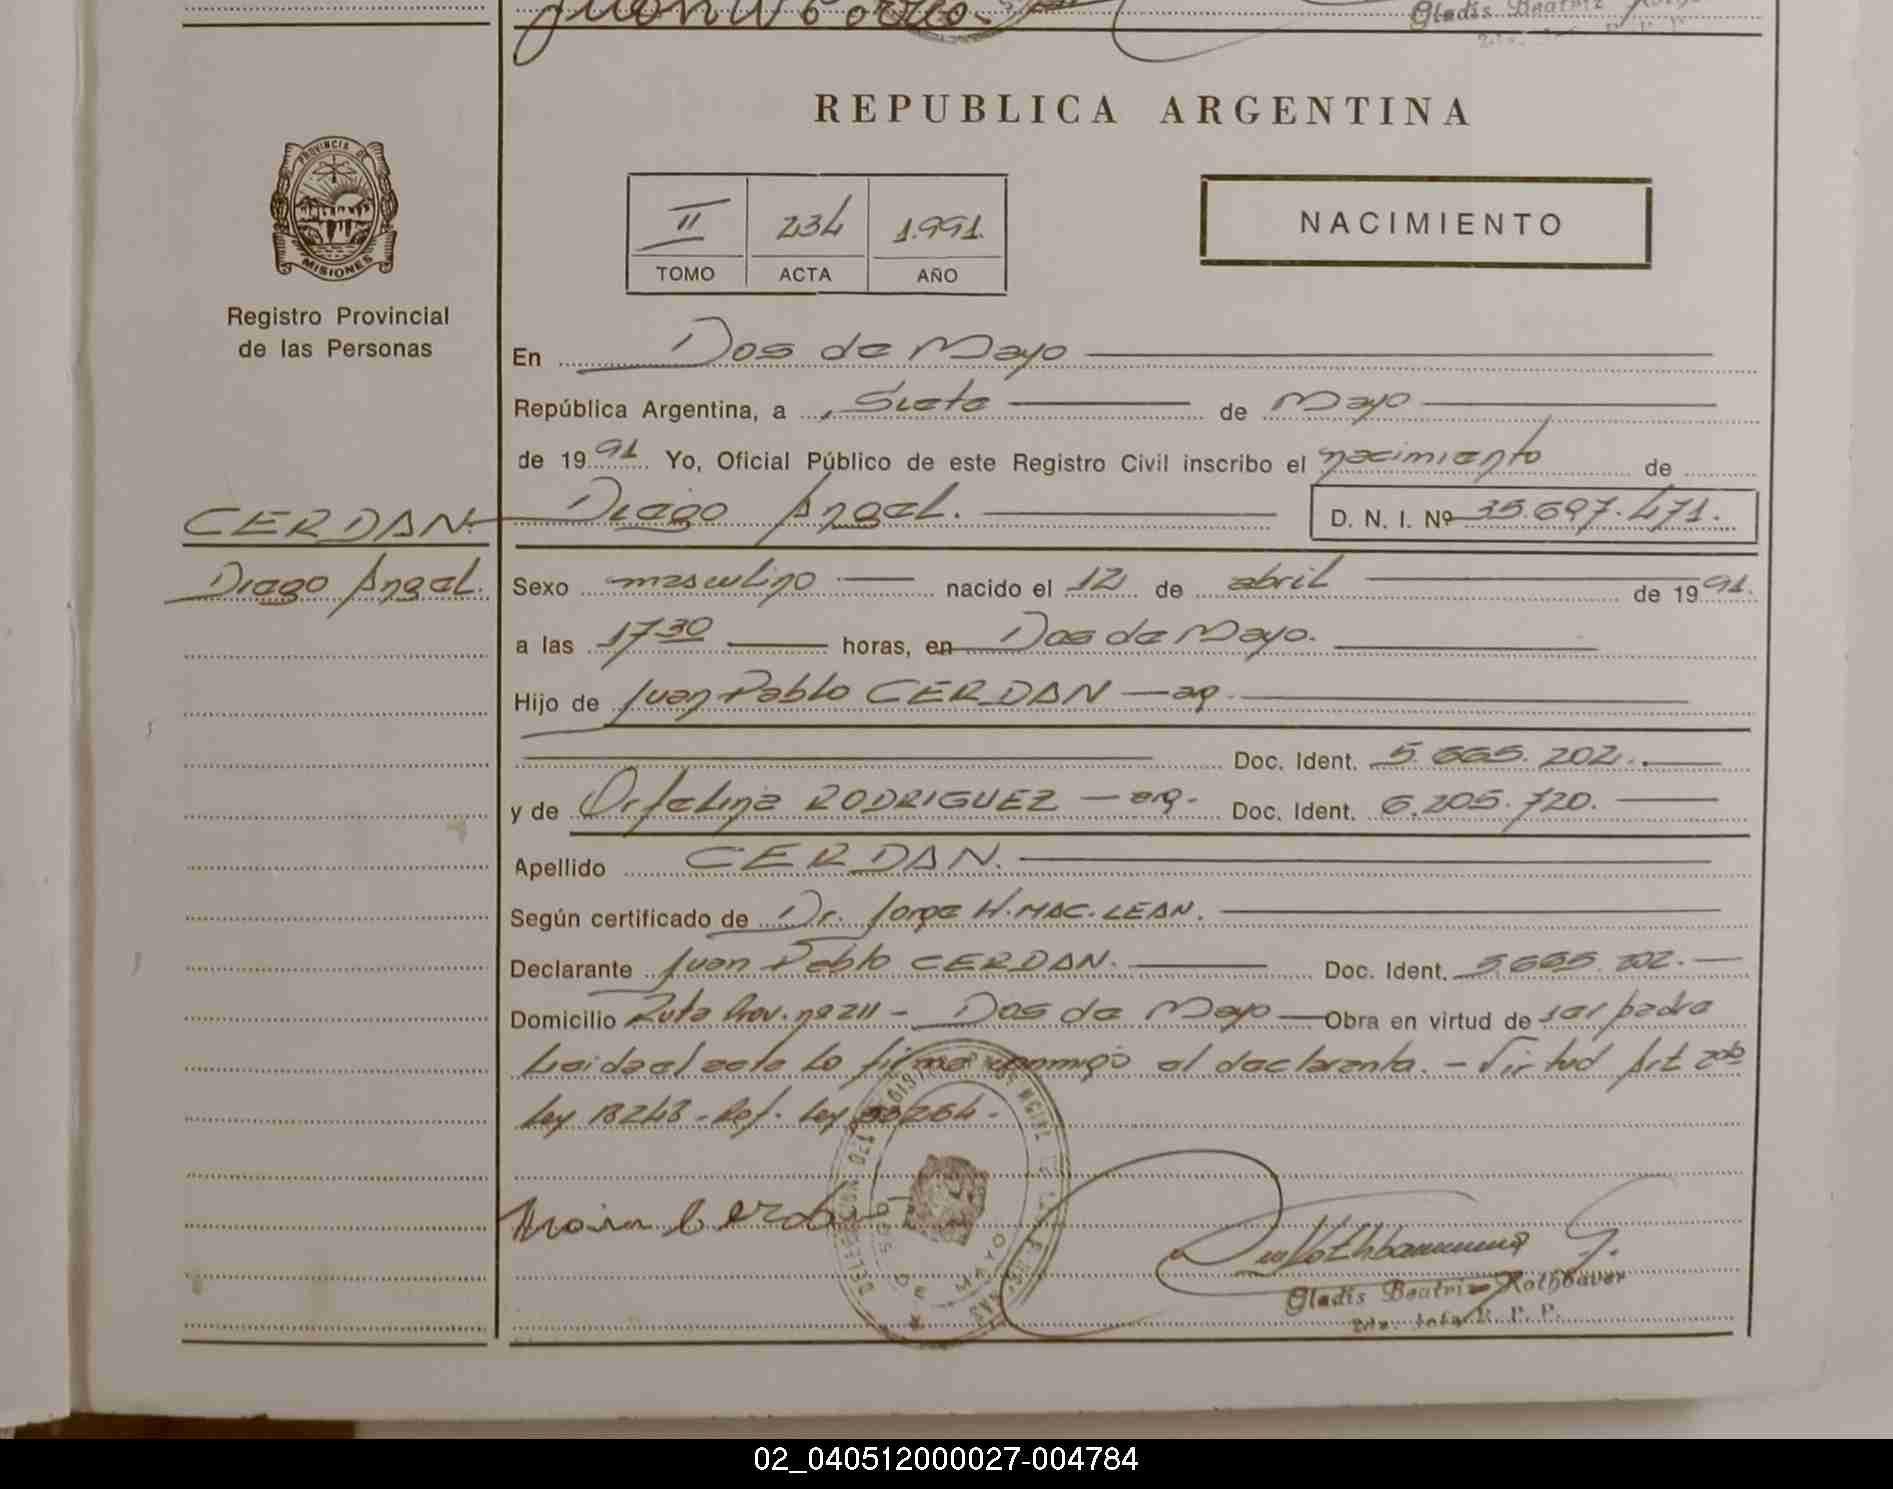 Gladis Beatriz
REPUBLICA ARGENTINA
PROVINCIA DE
MISIONES
Registro Provincial
de las Personas
II 234 1.991.
TOMO ACTA AÑO
NACIMIENTO
En Dos de Mayo
República Argentina, a Siete de Mayo
de 19 91 Yo, Oficial Público de este Registro Civil inscribo el nacimiento de
CERDAN. Diego Angel. D. N. I. Nº 35.697.471.
Diego Angel. Sexo masculino nacido el 12 de abril de 19 91.
a las 17-30 horas, en Dos de Mayo.
Hijo de Juan Pablo CERDAN - ar.
Doc. Ident. 5.665.202.
y de Orfelina RODRIGUEZ - arg. Doc. Ident. 6.205.720.
Apellido CERDAN.
Según certificado de Dr. Jorge H. MAC. LEAN.
Declarante Juan Pablo CERDAN. Doc. Ident. 5.665.202.
Domicilio Ruta Prov. nº 211 - Dos de Mayo Obra en virtud de ser padre
Leida el acta lo firma conmigo el declarante. - Virtud Art
Ley 18248 - Ref. Ley 23264 -
DELEGACION DEL REGISTRO PROVINCIAL DE LAS PERSONAS
DOS DE MAYO
Gladis Beatriz Rothbauer
R. P. P.
02_040512000027-004784